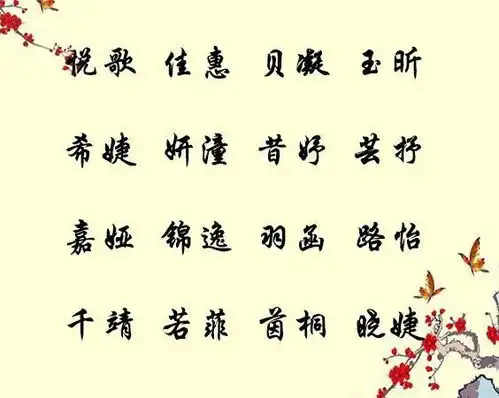 悦歌 佳惠 贝凝 玉昕
希婕 妍潼 昔妤 芸抒
嘉娅 锦逸 羽函 路怡
千靖 若菲 茵桐 晓婕